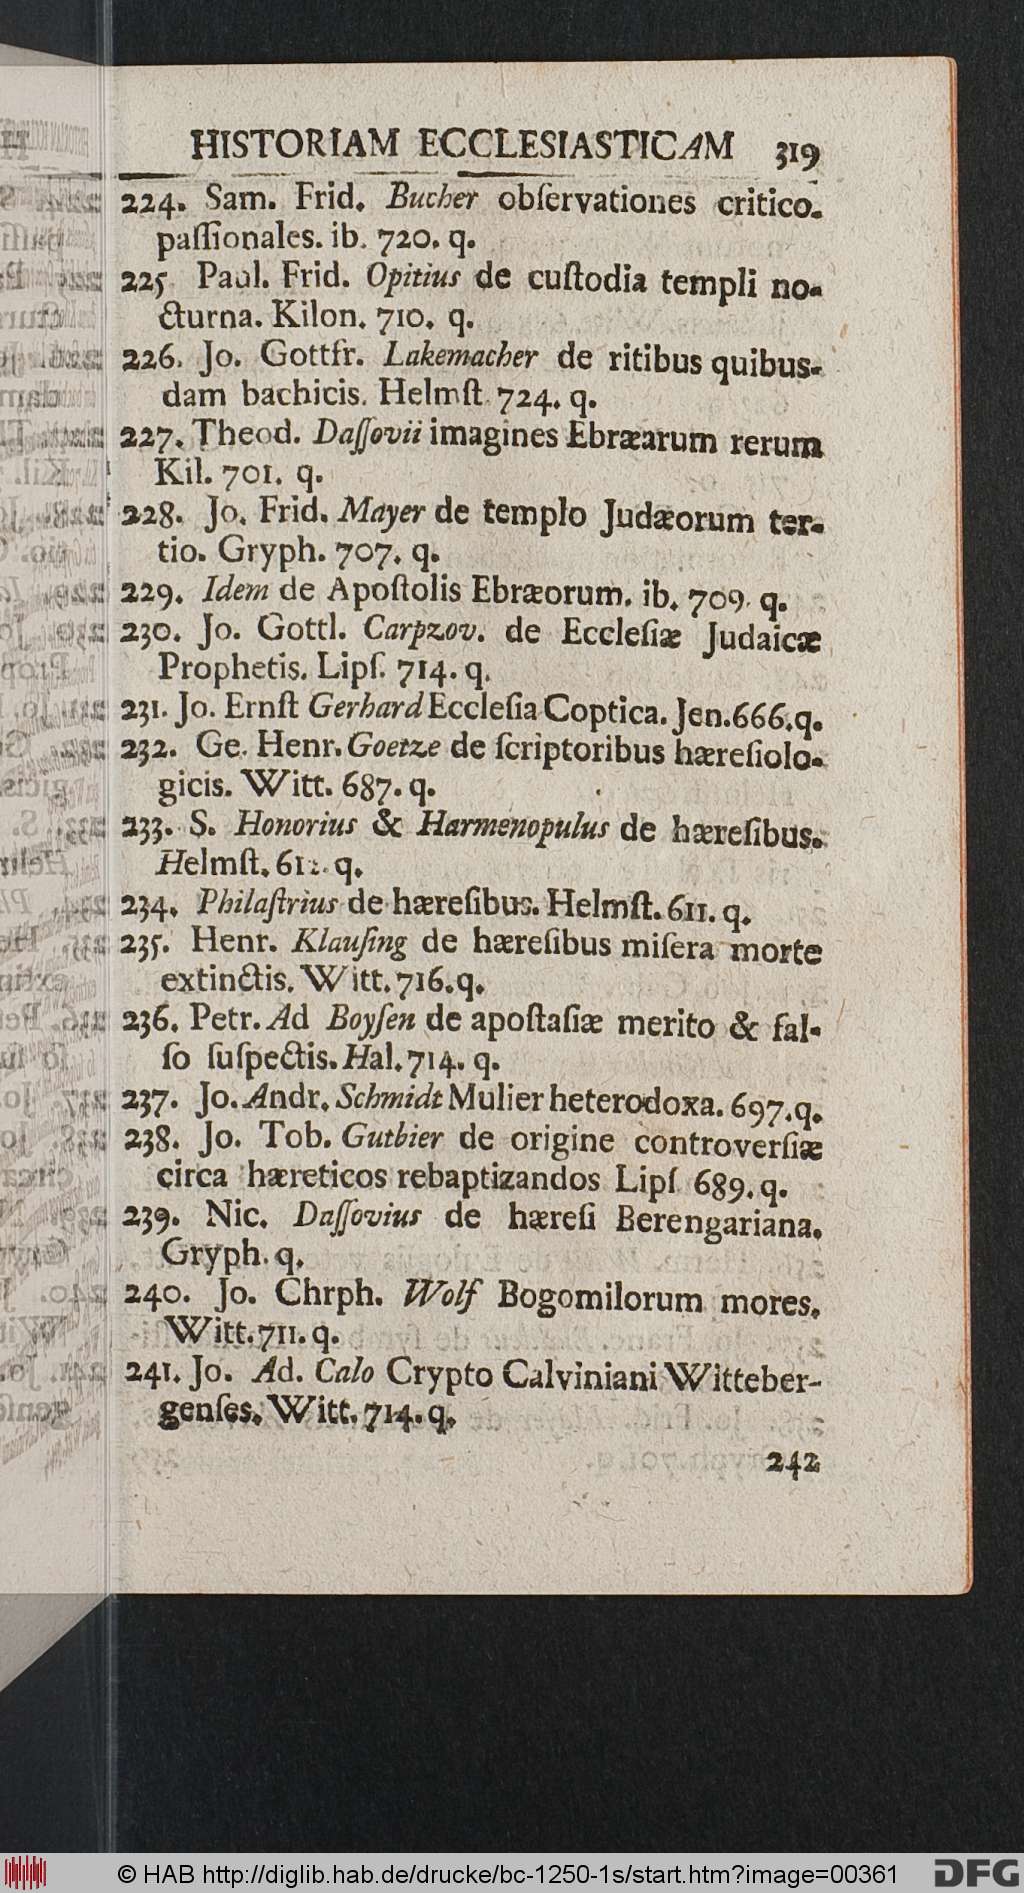 HISTORIAM ECCLESIASTICAM 319
224. Sam. Frid. Bucher obſervationes critico-
paſſionales. ib. 720. q.
225 Paul. Frid. Opitius de cuſtodia templi no-
cturna. Kilon. 710. q.
226. Jo. Gottfr. Lakemacher de ritibus quibus-
dam bachicis. Helmſt. 724. q.
227. Theod. Daſſovii imagines Ebræarum rerum
Kil. 701. q.
228. Jo. Frid. Mayer de templo Judæorum ter-
tio. Gryph. 707. q.
229. Idem de Apoſtolis Ebræorum. ib. 709. q.
230. Jo. Gottl. Carpzov. de Eccleſiæ Judaicæ
Prophetis. Lipſ. 714. q.
231. Jo. Ernſt Gerhard Eccleſia Coptica. Jen. 666. q.
232. Ge. Henr. Goetze de ſcriptoribus hæreſiolo-
gicis. Witt. 687. q.
233. S. Honorius & Harmenopulus de hæreſibus.
Helmſt. q.
234. Philaſtrius de hæreſibus. Helmſt. 611. q.
235. Henr. Klauſing de hæreſibus miſera morte
extinctis. Witt. 716. q.
236. Petr. Ad Boyſen de apoſtaſiæ merito & fal-
ſo ſuſpectis. Hal. 714. q.
237. Jo. Andr. Schmidt Mulier heterodoxa. 697. q.
238. Jo. Tob. Gutbier de origine controverſiæ
circa hæreticos rebaptizandos Lipſ 689. q.
239. Nic. Daſſovius de hæreſi Berengariana.
Gryph. q.
240. Jo. Chrph. Wolf Bogomilorum mores.
Witt. 711. q.
241. Jo. Ad. Calo Crypto Calviniani Witteber-
genſes. Witt. 714. q.
242
© HAB http://diglib.hab.de/drucke/bc-1250-1s/start.htm?image=00361
DFG